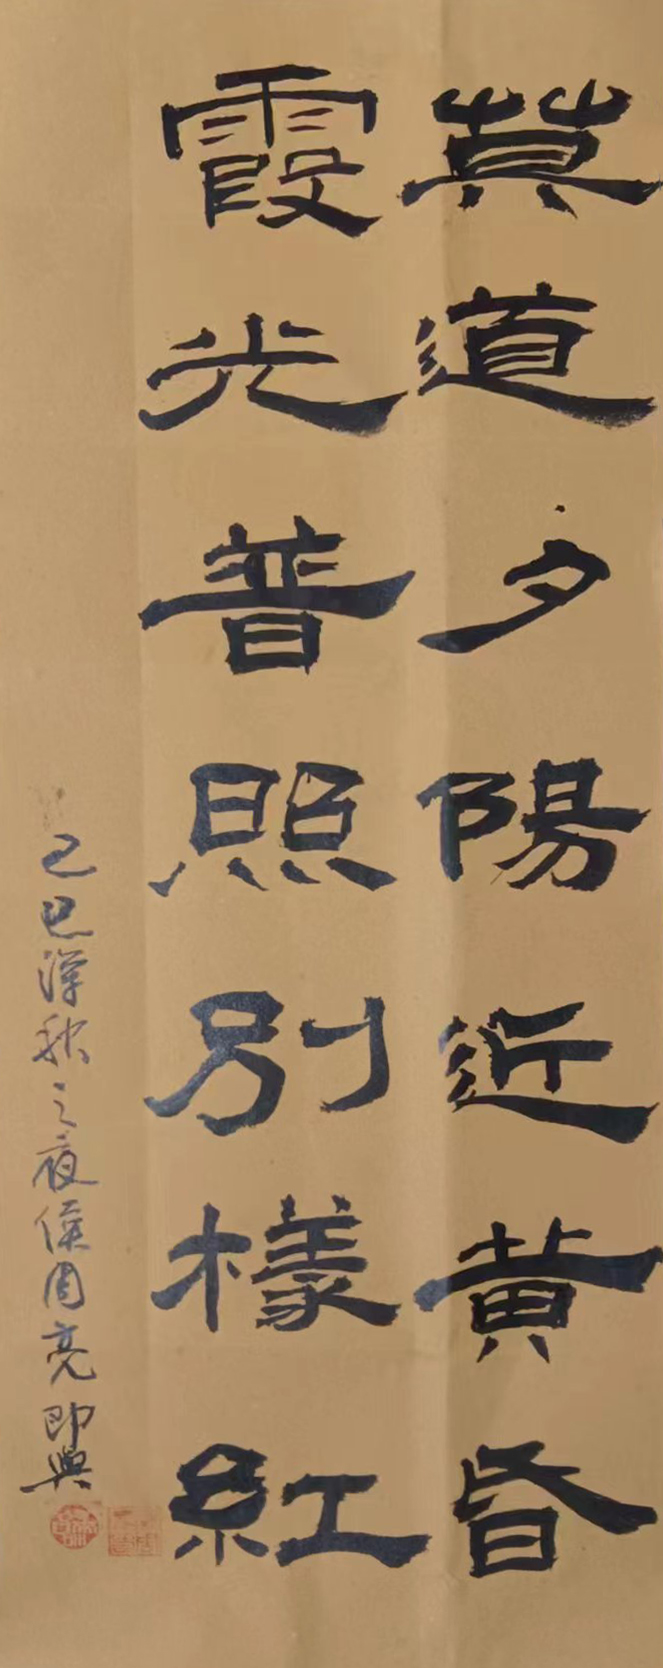 莫道夕陽近黄昏
霞光普照别樣紅
己巳深秋之夜侯周亮即興